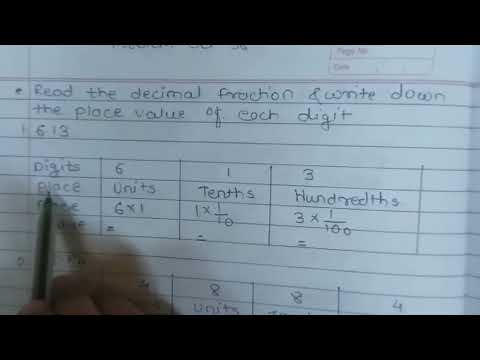 Page No
Date
• Read the decimal fraction & write down
the place value of each digit
1. 6.13
Digits 6 1 3
Place Units Tenths Hundredths
6×1 1×1/10 3×1/100
= = =
8 8 4
Units